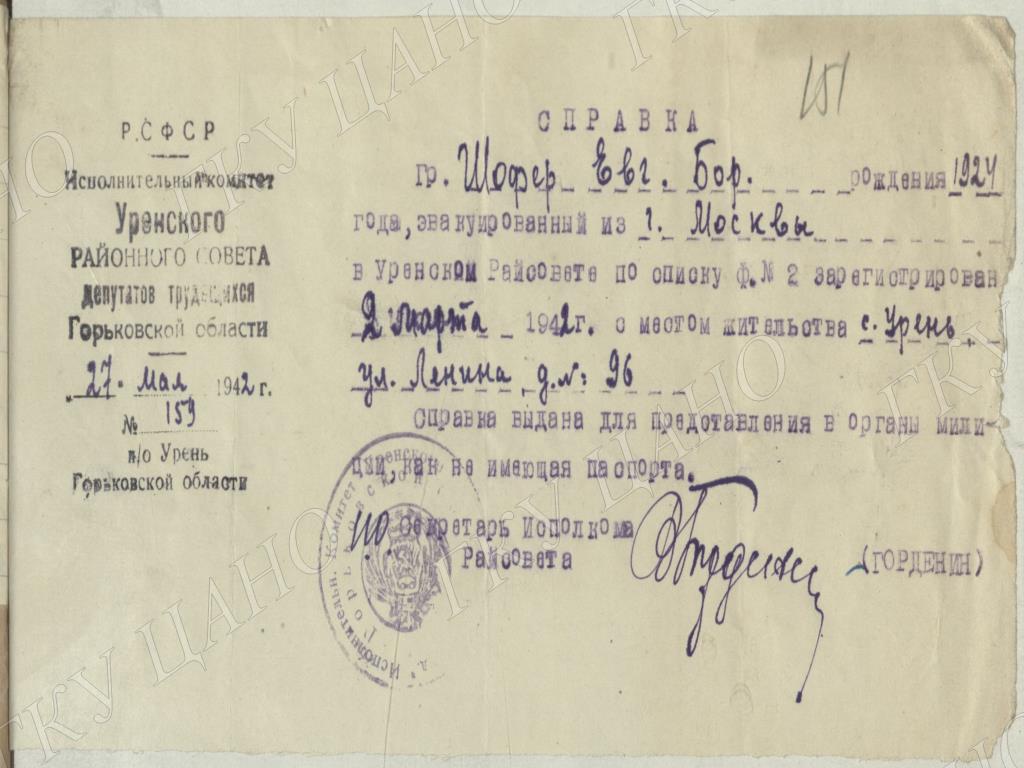 151
Р.С Ф С Р
Исполнительный комитет
Уренского
РАЙОННОГО СОВЕТА
депутатов трудящихся
Горьковской области
„27. Мая 1942 г.
№ 159
п/о Урень
Горьковской области
СПРАВКА
Гр. Шофер Евг. Бор. рождения 1924
года, эвакуированный из г. Москвы
в Уренском Райсовете по списку ф.№ 2 зарегистрирован
2 марта 1942г. с местом жительства с. Урень,
ул. Ленина д.№: 96
Справка выдана для представления в органы мили-
ции, как не имеющая паспорта.
И.О. Секретарь Исполкома
Райсовета
(ГОРДЕНИН)
Исполнительн. Комитет Уренского
Горьковской
ГКУ ЦАНО